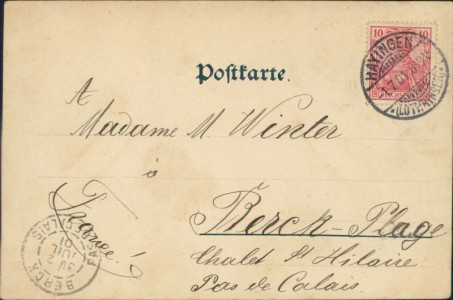 10 10
HAYINGEN
(LOTHRINGEN)
Postkarte.
A
Madame M. Winter
à
Berck-Plage
Chalet St Hilaire
Pas de Calais.
(France.)
BERCK
PAS DE CALAIS